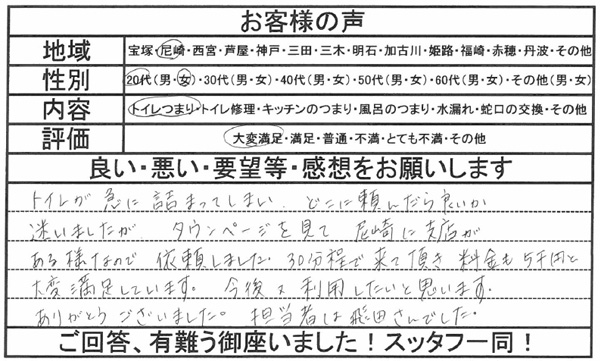 お客様の声
地域 宝塚・尼崎・西宮・芦屋・神戸・三田・三木・明石・加古川・姫路・福崎・赤穂・丹波・その他
性別 20代(男・女)・30代(男・女)・40代(男・女)・50代(男・女)・60代(男・女)・その他(男・女)
内容 トイレつまり・トイレ修理・キッチンのつまり・風呂のつまり・水漏れ・蛇口の交換・その他
評価 大変満足・満足・普通・不満・とても不満・その他
良い・悪い・要望等・感想をお願いします
トイレが急に詰まってしまい、どこに頼んだら良いか
迷いましたが、タウンページを見て尼崎に支店が
ある様なので依頼しました。30分程で来て頂き料金も5千円と
大変満足しています。今後又利用したいと思います。
ありがとうございました。担当者は飛田さんでした。
ご回答、有難う御座いました！スッタフ一同！